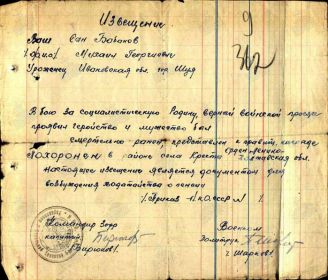 Извещение
9
302
Ваш Сан Бабанов
Михаил Георгиевич
Уроженец Ивановская обл. гор Шуя
В бою за социалистическую Родину, верный воинской присяге
проявив геройство и мужество был
смертельно ранен, представлен к правит, награде
орден Ленина
Похоронен в районе села Полтавская обл.
настоящее извещение является документом для
возбуждения ходатайства о пенсии
(Приказ Н.К.О. СССР № )
Командир
капитан
Военком
г. Шарков